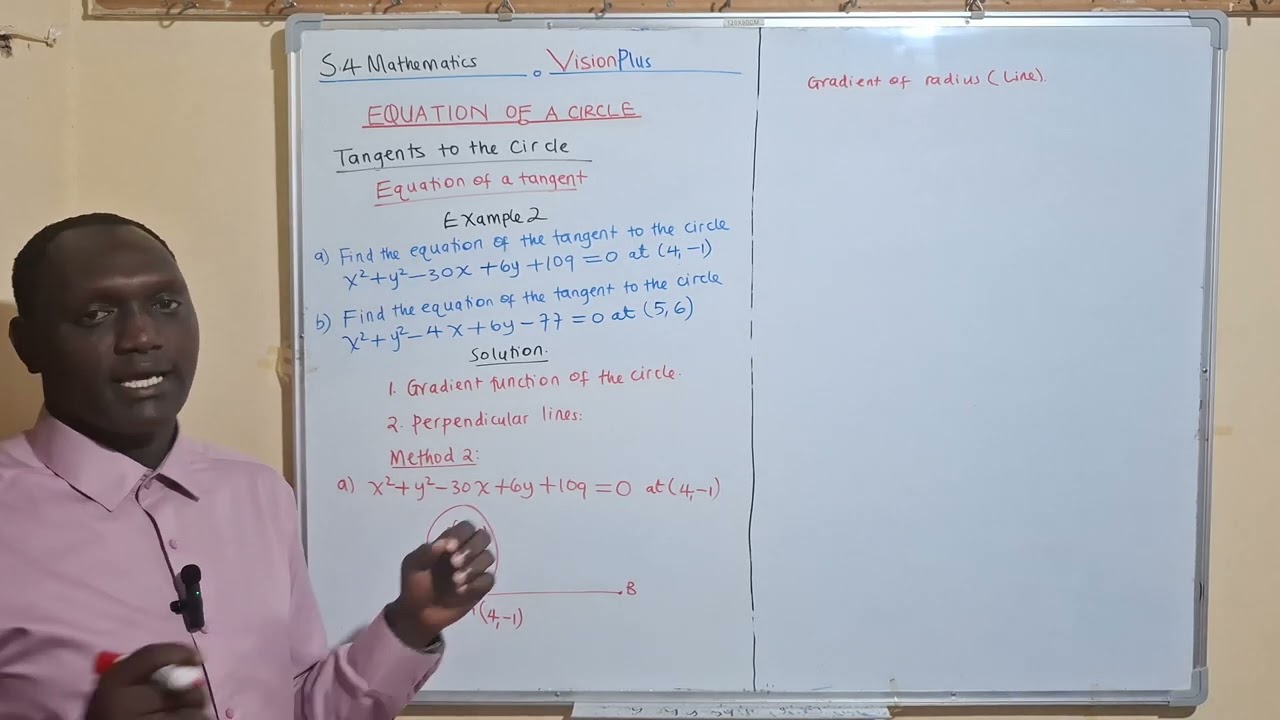 120X90CM
S.4 Mathematics
VisionPlus
EQUATION OF A CIRCLE
Tangents to the Circle
Equation of a tangent
Example 2
a) Find the equation of the tangent to the circle
x²+y²-30x+6y+109=0 at (4,-1)
b) Find the equation of the tangent to the circle
x²+y²-4x+6y-77=0 at (5,6)
Solution.
1. Gradient function of the circle.
2. Perpendicular lines:
Method 2:
a) x²+y²-30x+6y+109=0 at (4,-1)
B
(4,-1)
Gradient of radius (Line).